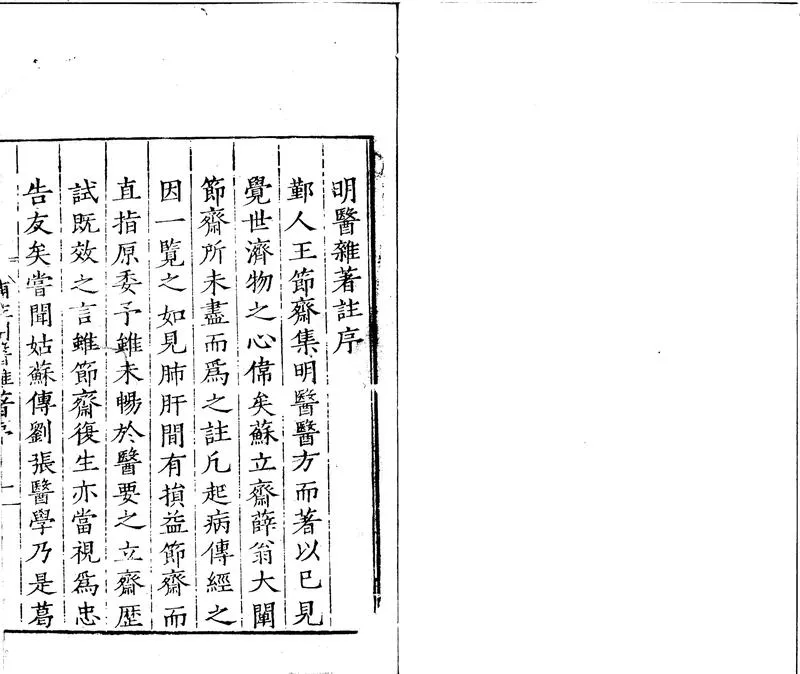 明醫雜著註序
鄞人王節齋集明醫醫方而著以已見
覺世濟物之心偉矣蘇立齋薛翁大闡
節齋所未盡而爲之註凡起病傳經之
因一覽之如見肺肝間有損益節齋而
直指原委予雖未暢於醫要之立齋歷
試既效之言雖節齋復生亦當視爲忠
告友矣嘗聞姑蘇傳劉張醫學乃是葛